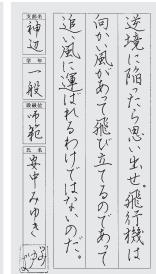 逆境に陥ったら思い出せ。飛行機は
向かい風があって飛び立てるのであって
追い風に運ばれるわけではないのだ。
支部名
神辺
学年
一般
段級位
師範
氏名
安中みゆき